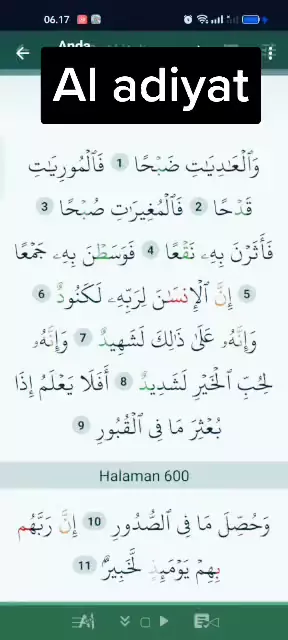 06.17
Anda
Al adiyat
وَٱلْعَـٰدِيَـٰتِ ضَبْحًا ١ فَٱلْمُورِيَـٰتِ
قَدْحًا ٢ فَٱلْمُغِيرَٰتِ صُبْحًا ٣
فَأَثَرْنَ بِهِۦ نَقْعًا ٤ فَوَسَطْنَ بِهِۦ جَمْعًا
٥ إِنَّ ٱلْإِنسَـٰنَ لِرَبِّهِۦ لَكَنُودٌ ٦
وَإِنَّهُۥ عَلَىٰ ذَٰلِكَ لَشَهِيدٌ ٧ وَإِنَّهُۥ
لِحُبِّ ٱلْخَيْرِ لَشَدِيدٌ ٨ أَفَلَا يَعْلَمُ إِذَا
بُعْثِرَ مَا فِى ٱلْقُبُورِ ٩
Halaman 600
وَحُصِّلَ مَا فِى ٱلصُّدُورِ ١٠ إِنَّ رَبَّهُم
بِهِمْ يَوْمَئِذٍ لَّخَبِيرٌۢ ١١